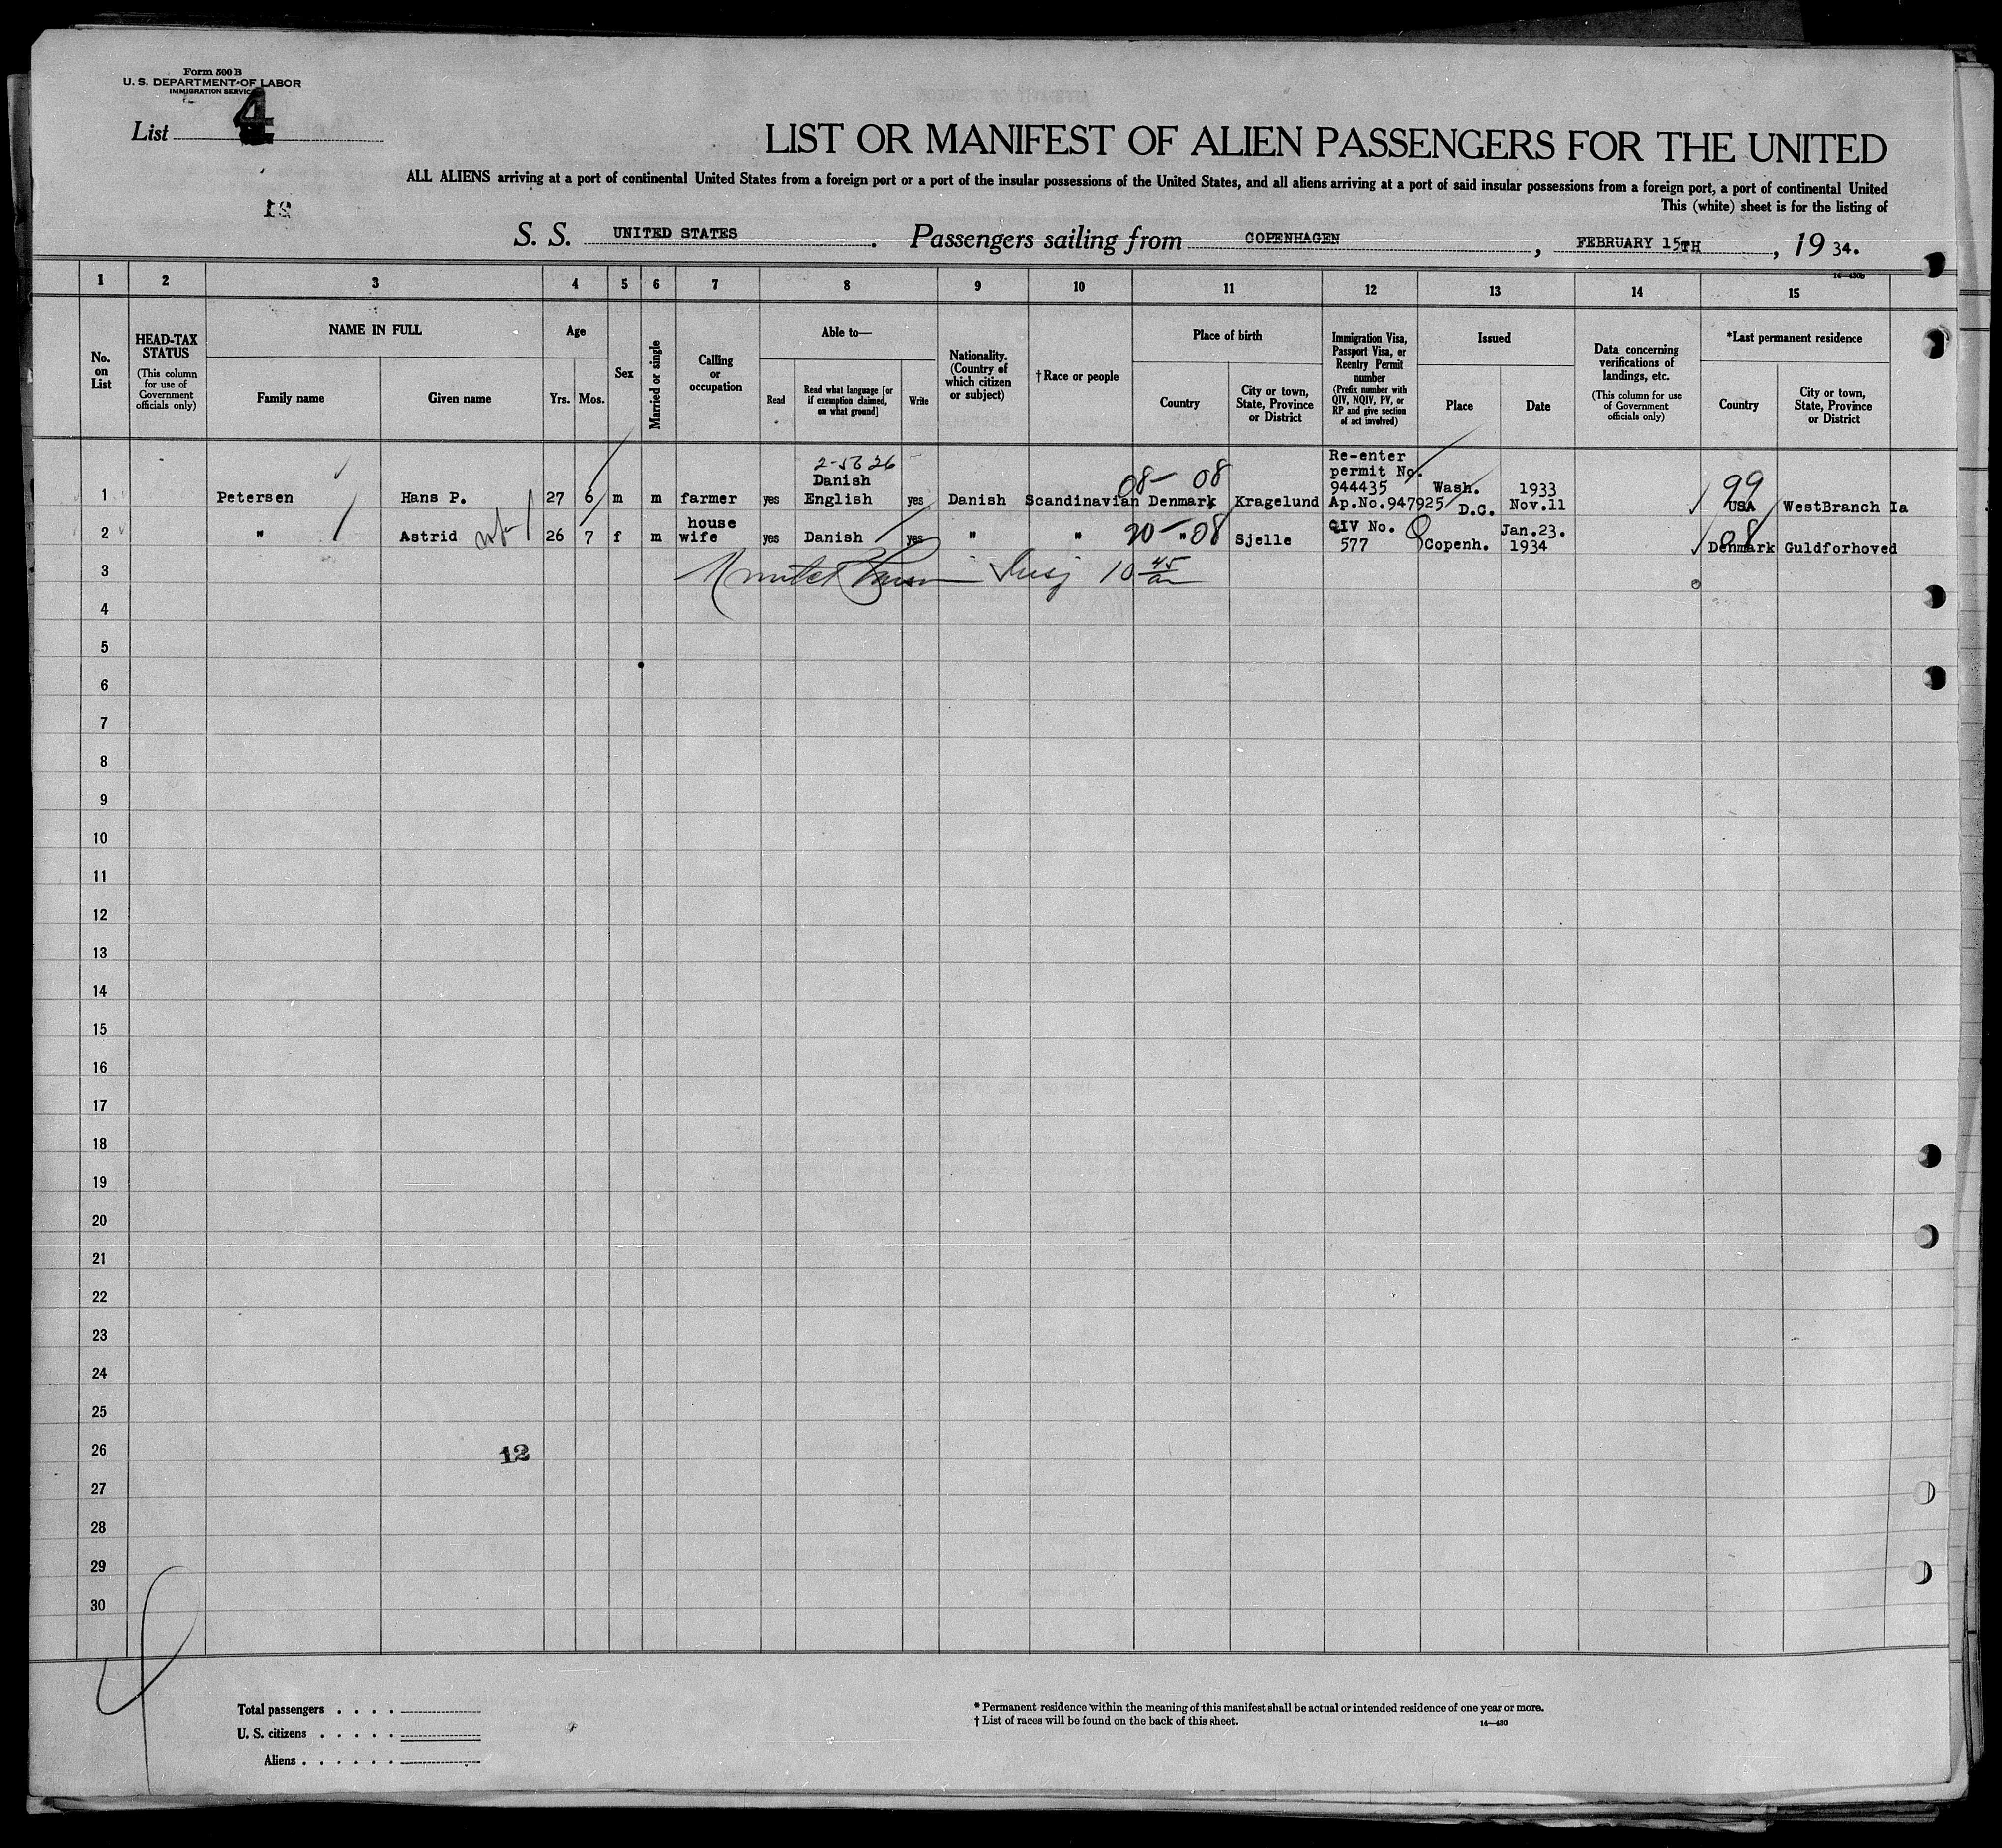 Form 500 B
U. S. DEPARTMENT OF LABOR
IMMIGRATION SERVICE
List 4
LIST OR MANIFEST OF ALIEN PASSENGERS FOR THE UNITED
ALL ALIENS arriving at a port of continental United States from a foreign port or a port of the insular possessions of the United States, and all aliens arriving at a port of said insular possessions from a foreign port, a port of continental United
This (white) sheet is for the listing of
S. S. UNITED STATES. Passengers sailing from COPENHAGEN, FEBRUARY 15TH, 19 34.
14-430b
1 2 3 4 5 6 7 8 9 10 11 12 13 14 15
No. on List
HEAD-TAX STATUS
(This column for use of Government officials only)
NAME IN FULL
Family name
Given name
Age
Yrs.
Mos.
Sex
Married or single
Calling or occupation
Able to—
Read
Read what language [or if exemption claimed, on what ground]
Write
Nationality. (Country of which citizen or subject)
†Race or people
Place of birth
Country
City or town, State, Province or District
Immigration Visa, Passport Visa, or Reentry Permit number
(Prefix number with QIV, NQIV, PV, or RP and give section of act involved)
Issued
Place
Date
Data concerning verifications of landings, etc.
(This column for use of Government officials only)
*Last permanent residence
Country
City or town, State, Province or District
1 Petersen Hans P. 27 6 m m farmer yes 2-5626 Danish English yes Danish Scandinavian 08- 08 Denmark Kragelund Re-enter permit No. 944435 Ap.No.947925 Wash. D.C. 1933 Nov.11 99 USA WestBranch Ia
2 " Astrid 26 7 f m house wife yes Danish yes " " 20 - " 08 Sjelle QIV No. 577 Copenh. Jan.23. 1934 08 Denmark Guldforhoved
3 10 45
4
5
6
7
8
9
10
11
12
13
14
15
16
17
18
19
20
21
22
23
24
25
26
12
27
28
29
30
Total passengers . . . .
U. S. citizens . . . . .
Aliens . . . . . .
* Permanent residence within the meaning of this manifest shall be actual or intended residence of one year or more.
† List of races will be found on the back of this sheet.
14-430